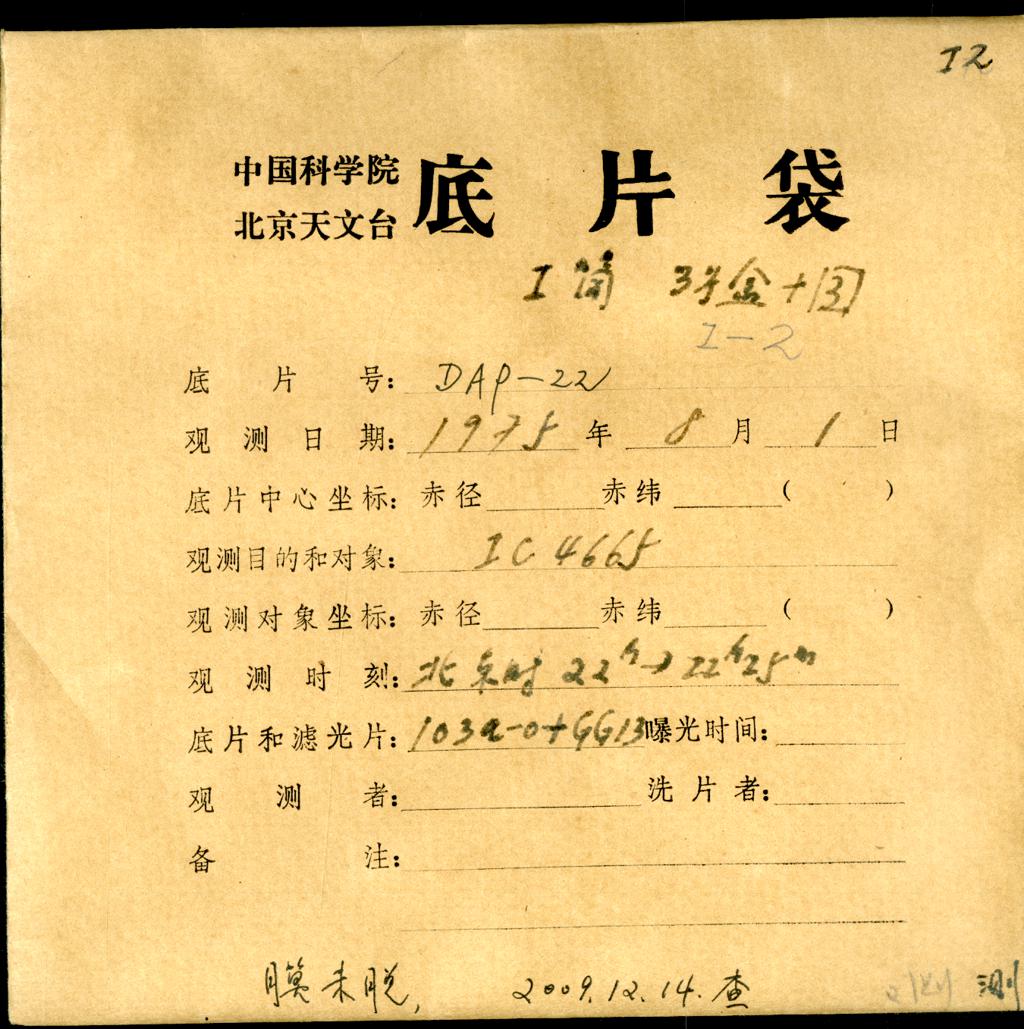 I2
中国科学院
北京天文台 底片袋
I 筒 3号盒+图
I-2
底片号: DAP-22
观测日期: 1975 年 8 月 1 日
底片中心坐标: 赤径 赤纬 ( )
观测目的和对象: IC 4665
观测对象坐标: 赤径 赤纬 ( )
观测时刻: 北京时 22h→22h25m
底片和滤光片: 103a-o+GG13 曝光时间:
观测者: 洗片者:
备注:
膜未脱, 2009.12.14.查
测 测